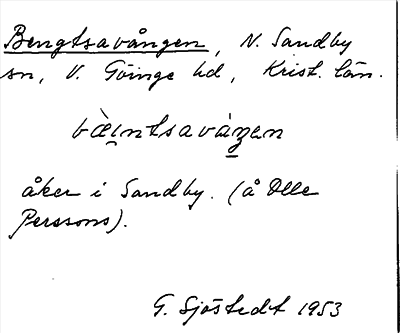 Bengtsavången, N. Sandby
sn, V. Göinge hd, Krist. län.
bæ̀i̯ntsavåŋen
åker i Sandby. (å Olle
Perssons).
G. Sjöstedt 1953